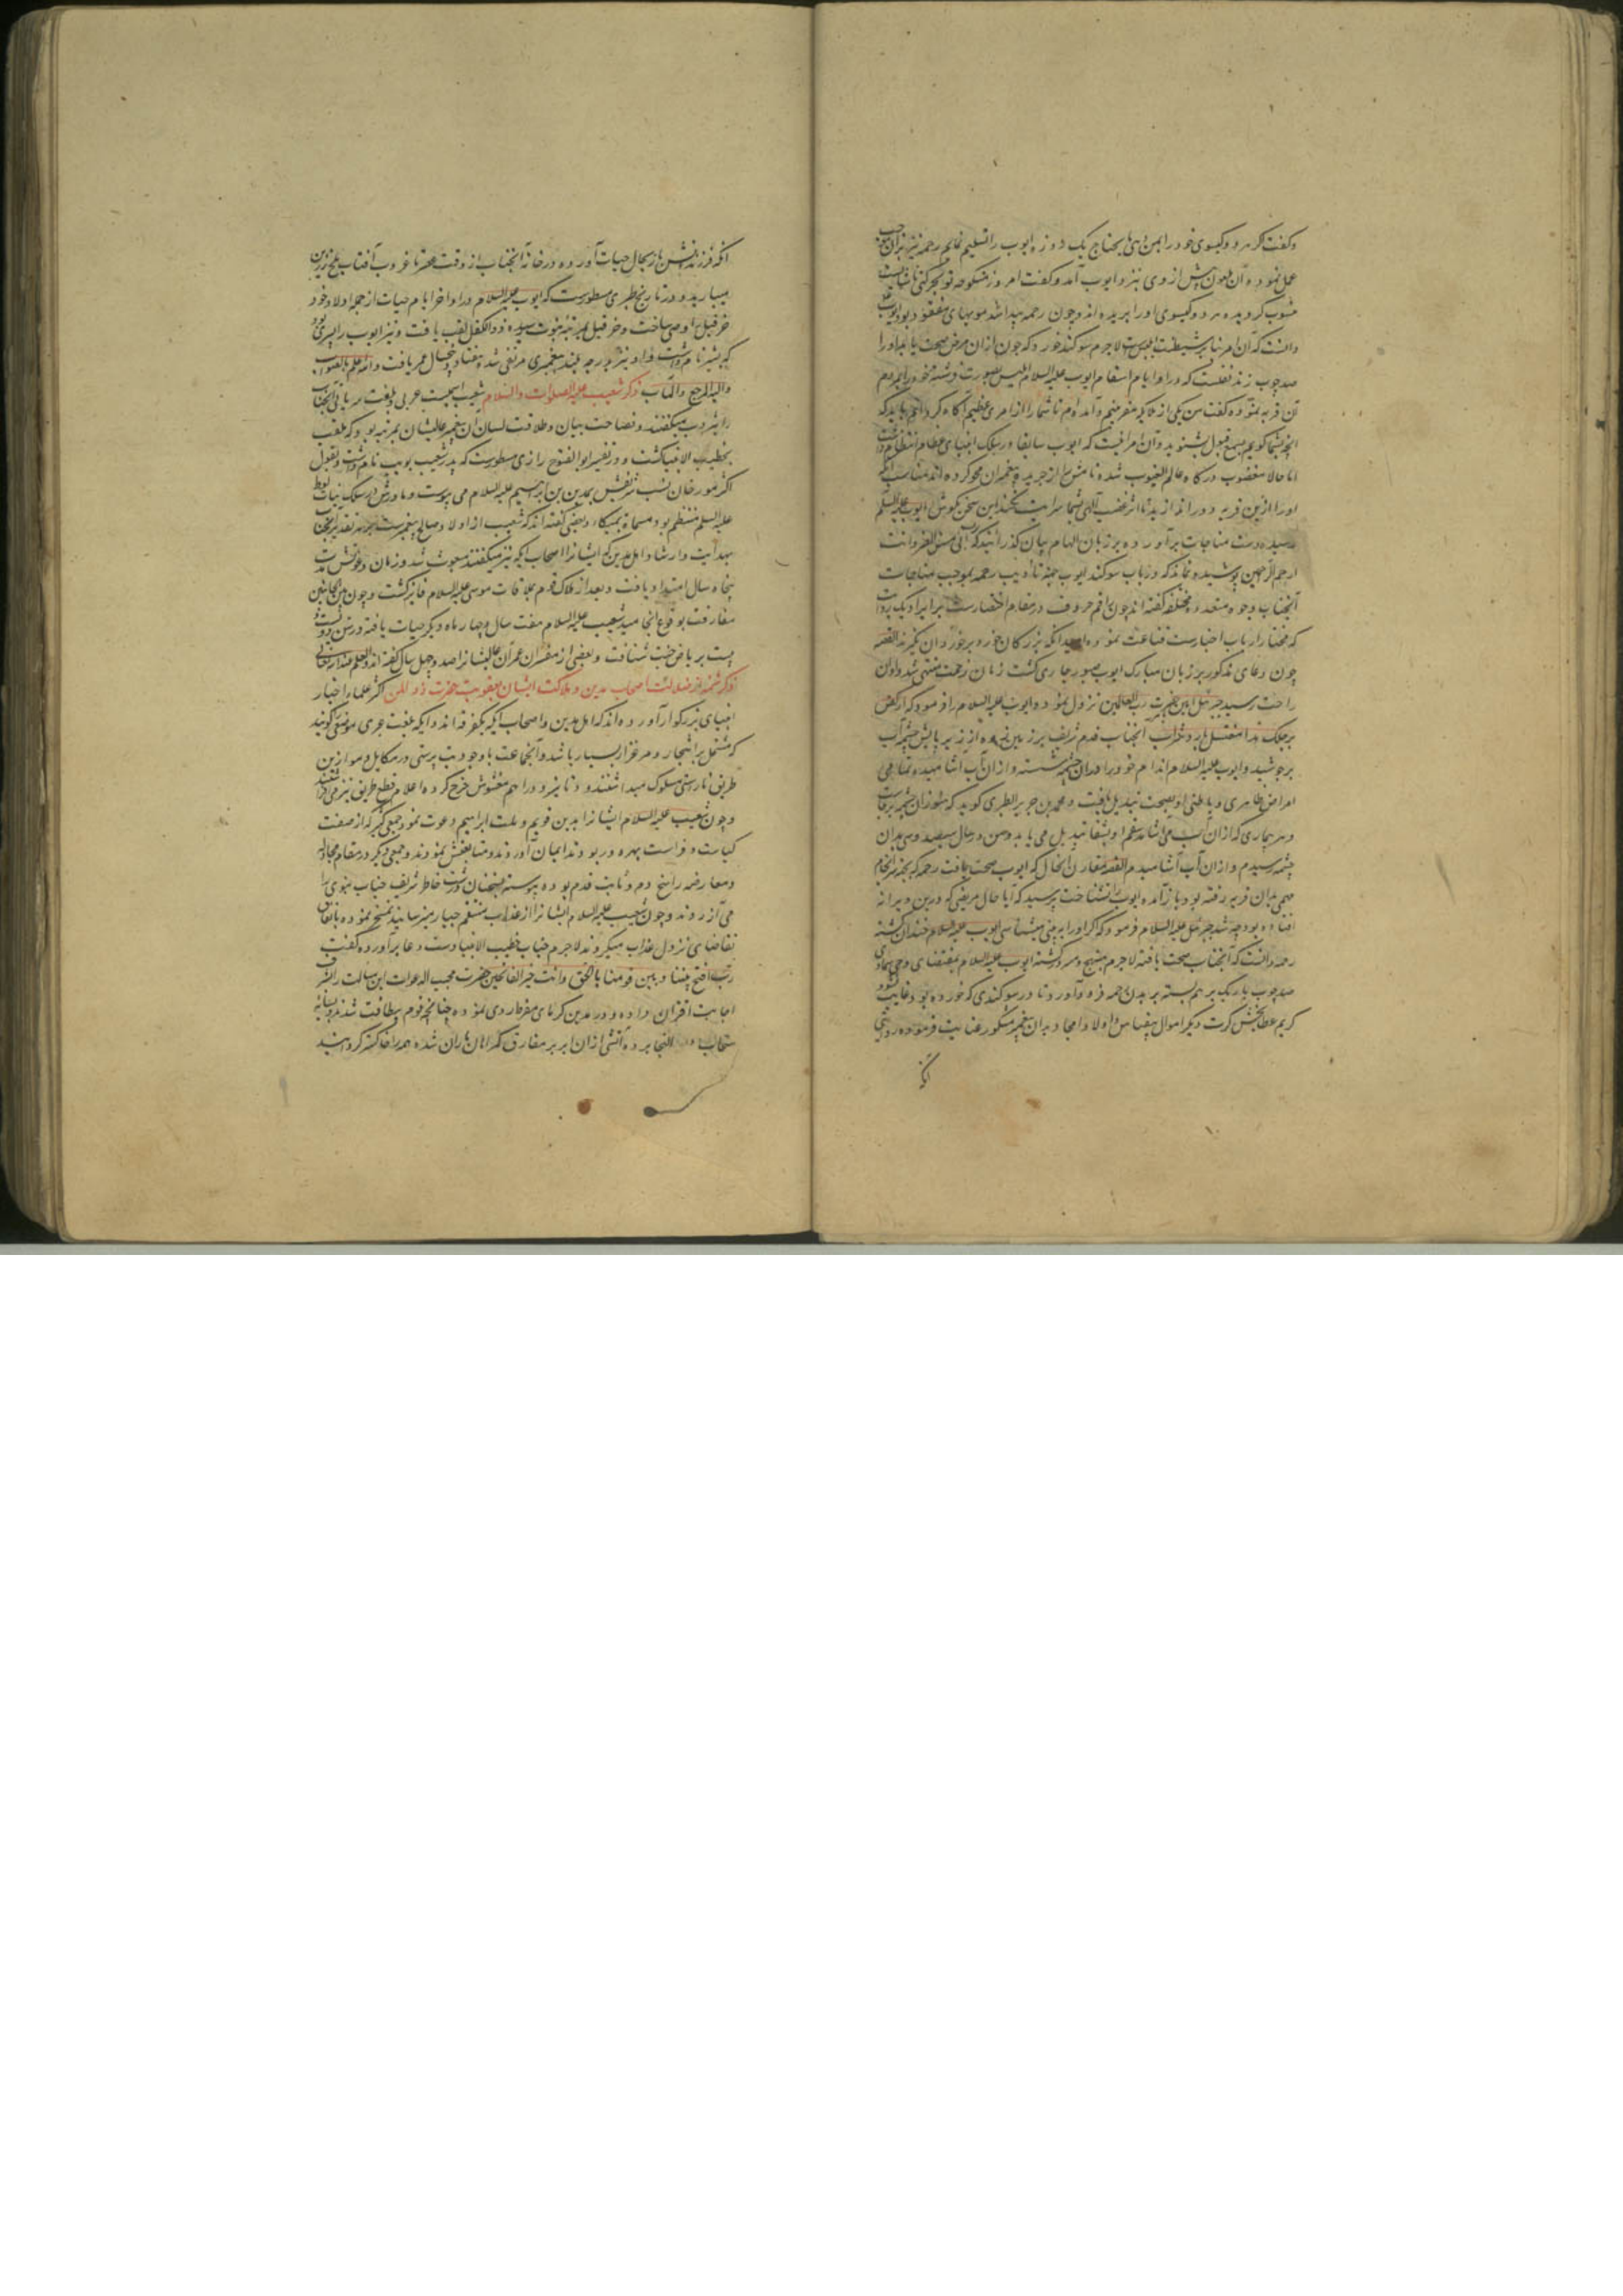 وگفت که هر دو گیسوی خود را بمن دهی تا یحتاج یک روزه ایوب را تسلیم نمایم رحمه نیز بران موجب
عمل نموده آن ملعون پیش از وی نزد ایوب آمد و گفت امروز منکوحه تو بحرکتی ناشایست
منسوب گردیده هر دو گیسوی او را بریده اند و چون رحمه پیدا شد مویهای مفقود بود ایوب
دانست که آن امر بنابر شیطنت ابلیس است لاجرم سوگند خورد که چون ازان مرض صحت یابد او را
صد چوب زند نقلست که در اوایام اسقام ایوب علیه السلام ابلیس بصورت فرشته خود را بمردم
آن قریه نموده گفت من یکی از ملایکه مقربینم و آمده ام تا شما را از امری عظیم آگاه گردانم باید که
آنچه بشما گویم بسمع قبول بشنوید و آن امر آنست که ایوب سابقا در سلک انبیای عظام انتظام داشت
اما حالا مغضوب درگاه عالم الغیوب شده نامش را از جریده پیغمبران محو کرده اند مناسب آنکه
او را ازین قریه دور اندازید تا اثر غضب الهی بشما سرایت نکند این سخن بگوش ایوب علیه السلم
رسیده دست مناجات برآورده بر زبان الهام بیان گذرانید که رب انی مسنی الضر و انت
ارحم الراحمین پوشیده نماند که در باب سوگند ایوب بجهة تادیب رحمه بموجب مناجات
آنجناب وجوه متعدده مختلفه گفته اند چون راقم حروف در مقام اختصارست بر ایراد یک روایت
که مختار ارباب اخبارست قناعت نموده امید آنکه بزرگان خورده بر خوردان نگیرند القصه
چون دعای مذکور بر زبان مبارک ایوب صبور جاری گشت زمان زحمت منتهی شد و اوان
راحت رسید جبرئیل امین بحضرت رب العالمین نزول نمود و ایوب علیه السلام را فرمود که ارکض
برجلک هذا مغتسل بارد و شراب آنجناب قدم شریف بر زمین زده از زیر پایش چشمه آب
برجوشید و ایوب علیه السلام اندام خود را در آن چشمه شسته و ازان آب آشامیده تمامی
امراض ظاهری و باطنی او بصحت تبدیل یافت و محمد بن جریر الطبری گوید که هنوز آن چشمه برقرارست
و هر بیماری که ازان آب می آشامد سقم او بشفا تبدیل می یابد و من در سال سیصد و سی بدان
چشمه رسیدم و ازان آب آشامیدم القصه مقارن آنحال که ایوب صحت یافت رحمه که بجهة سرانجام
مهمی بدان قریه رفته بود باز آمده ایوب را نشناخت پرسید که آیا حال مریضی که درین ویرانه
افتاده بود چه شد جبرئیل علیه السلام فرمود که اگر او را به بینی میشناسی ایوب علیه السلام خندان گشته
رحمه دانست که آنجناب صحت یافته لاجرم مبتهج و مسرور گشته ایوب علیه السلام بمقتضای وحی سماوی
صد چوب باریک بر هم بسته بر بدن رحمه فرود آورد تا در سوگندی که خورده بود حانث نشود
کریم عطابخش کرت دیگر اموال بیقیاس و اولاد امجاد بدان پیغمبر مشکور عنایت فرموده روایتی
آنکه
آنکه فرزندانش باز بحال حیات آورده در خانه آنجناب از وقت سحر تا غروب آفتاب ملخ زرین
میبارید و در تاریخ طبری مسطورست که ایوب علیه السلام در اواخر ایام حیات از جمله اولاد خود
خرقیل را وصی ساخت و خرقیل بمرتبه نبوت رسیده ذو الکفل لقب یافت و نیز ایوب را پسری بود
که بشیر نام داشت و او نیز بدرجه بلند پیغمبری مرتقی شد و هفتاد و پنج سال عمر یافت والله اعلم بالصواب
والیه المرجع والمآب ذکر شعیب علیه الصلوات والسلام شعیب اسمیست عربی و بلغت سریانی آنجناب
را یثروب میگفتند و فصاحت بیان و طلاقت لسان آن پیغمبر عالیشان بمرتبه بود که ملقب
بخطیب الانبیا گشت و در تفسیر ابوالفتوح رازی مسطورست که پدر شعیب بویب نام داشت و بقول
اکثر مورخان نسب شریفش بمدین بن ابراهیم علیه السلام می پیوست و مادرش در سلک بنات لوط
علیه السلم منتظم بود مسماة بمیکاء و بعضی گفته اند که شعیب از اولاد صالح پیغمبرست بر هر تقدیر آنجناب
بهدایت و ارشاد اهل مدین که ایشانرا اصحاب ایکه نیز میگفتند مبعوث شد و زمان دعوتش مدت
پنجاه سال امتداد یافت و بعد از هلاک قوم بملاقات موسی علیه السلام فایز گشت و چون من الجانبین
مفارقت بوقوع انجامید شعیب علیه السلام هفت سال و چهار ماه دیگر حیات یافته در سن دویست و
بیست بریاض جنت شتافت و بعضی از مفسران عمر آن عالیشانرا صد و چهل سال گفته اند والعلم عند الله تعالی
ذکر شمه از ضلالت اصحاب مدین و هلاکت ایشان بعقوبت حضرت ذو المنن اکثر علماء اخبار
انبیای بزرگوار آورده اند که اهل مدین و اصحاب ایکه یکفرقه اند و ایکه بلغت عربی موضعی را گویند
که مشتمل بر اشجار و مرغزار بسیار باشد و آنجماعت با وجود بت پرستی در مکاییل و موازین
طریق ناراستی مسلوک میداشتند و دنانیر و دراهم مغشوش خرج کرده اعلام قطع طریق نیز می افراشتند
و چون شعیب علیه السلام ایشانرا بدین قویم و ملت ابراهیم دعوت نمود جمعی کثیر که از صفت
کیاست و فراست بهره ور بودند ایمان آوردند و متابعتش نمودند و جمعی دیگر در مقام مجادله
و معارضه راسخ دم و ثابت قدم بوده پیوسته بسخنان درشت خاطر شریف جناب نبوی را
می آزردند و چون شعیب علیه السلام ایشانرا از عذاب منتقم جبار میترسانید تمسخر نموده باتفاق
تقاضای نزول عذاب میکردند لاجرم جناب خطیب الانبیا دست دعا برآورده گفت
رب افتح بیننا و بین قومنا بالحق و انت خیر الفاتحین حضرت مجیب الدعوات این مسالت را شرف
اجابت اقتران داده در مدین گرمای مفرط روی نموده چنانچه قوم بیطاقت شدند و بسایه
سحاب التجا برده آتشی ازان ابر بر مفارق گمراهان باران شده همه را خاکستر گردانید